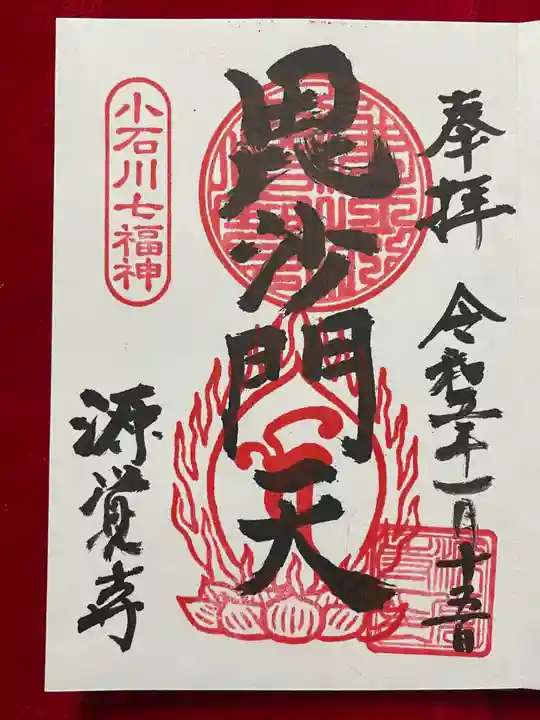 奉拝
令和五年一月十五日
毘沙門天
小石川七福神
源覚寺